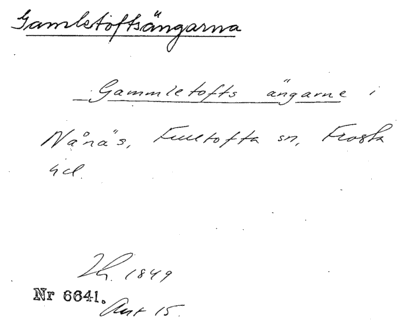 Gamletoftsängarna
Gammletofts ängarne i
Nånäs, Fulltofta sn, Frosta
hd.
1849
Nr 6641.
Ant 15.